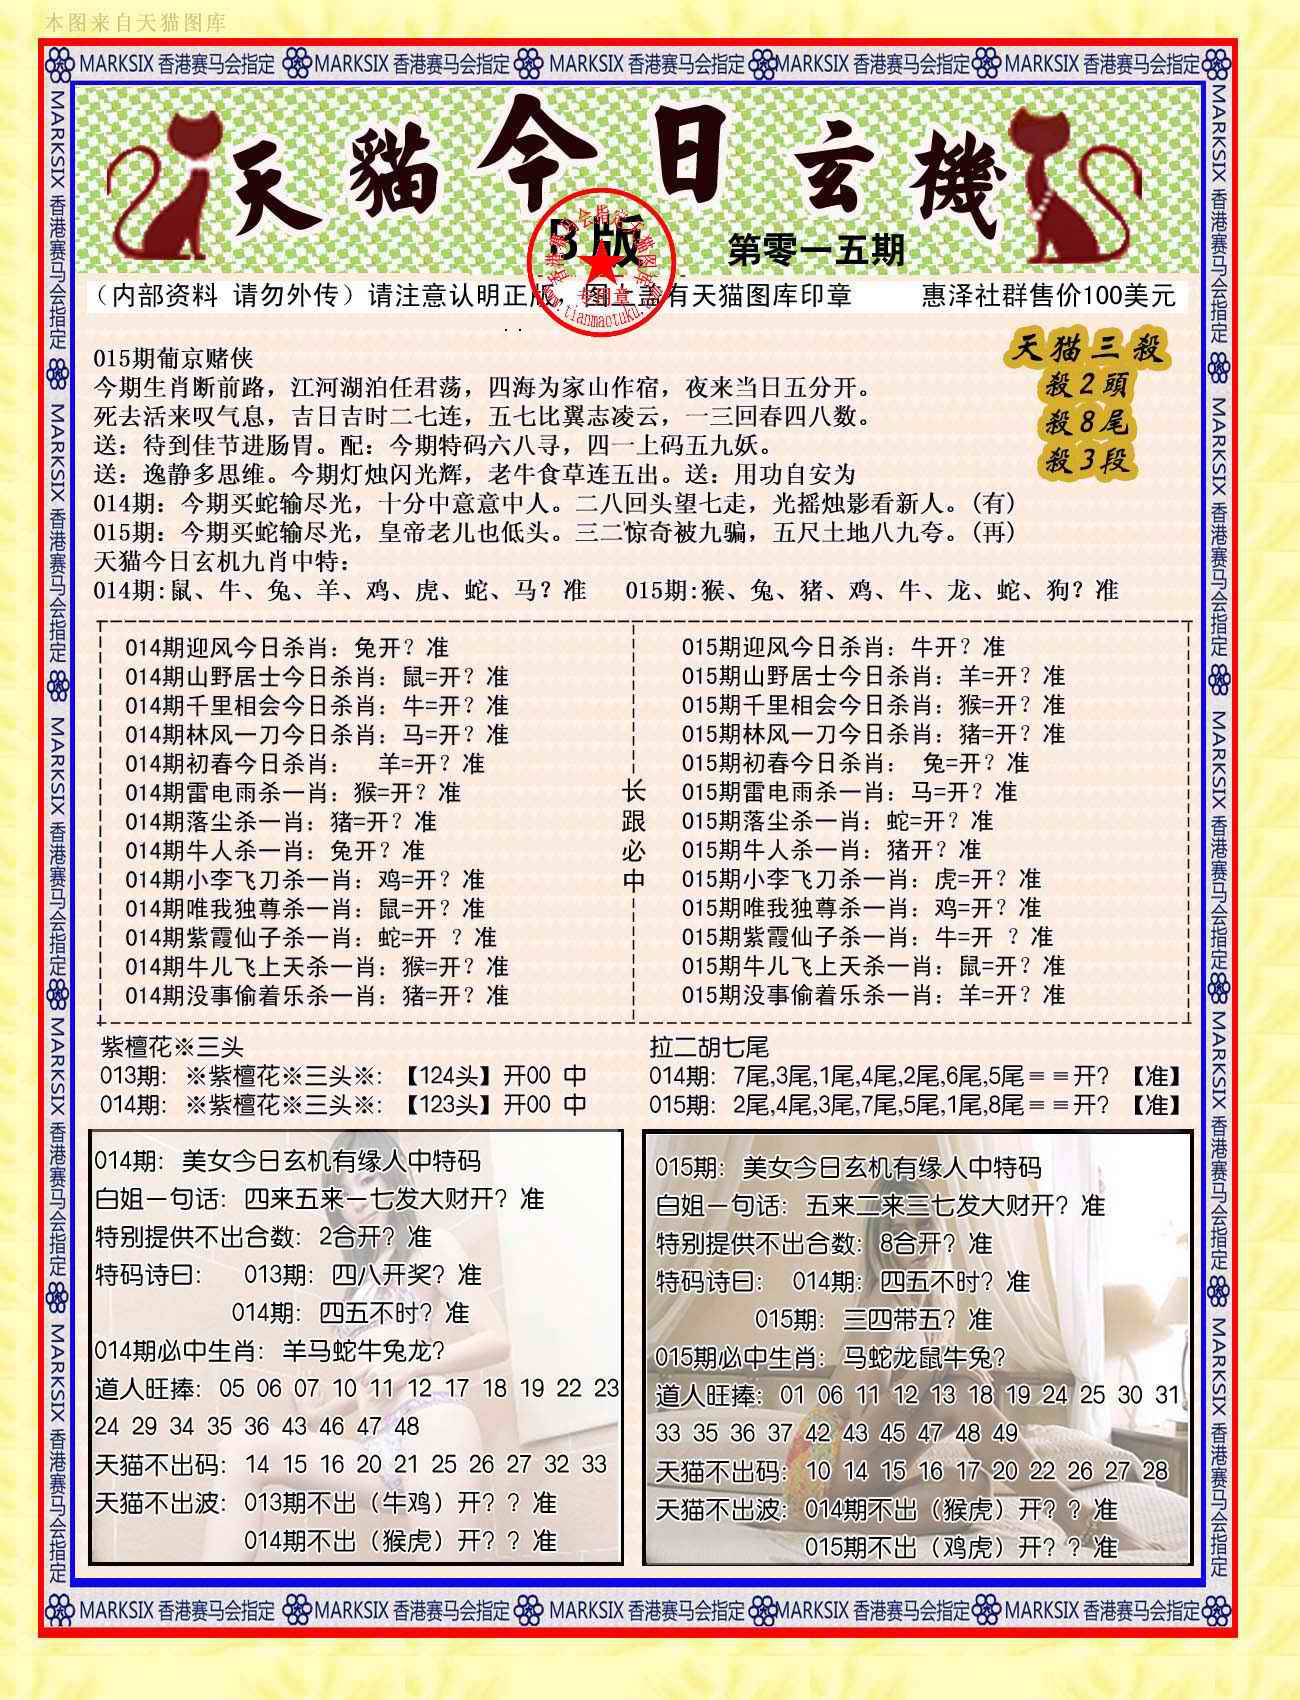 本图来自天猫图库
MARKSIX 香港赛马会指定 MARKSIX 香港赛马会指定 MARKSIX 香港赛马会指定 MARKSIX 香港赛马会指定 MARKSIX 香港赛马会指定
MARKSIX 香港赛马会指定 MARKSIX 香港赛马会指定 MARKSIX 香港赛马会指定 MARKSIX 香港赛马会指定 MARKSIX 香港赛马会指定
MARKSIX 香港赛马会指定 MARKSIX 香港赛马会指定 MARKSIX 香港赛马会指定 MARKSIX 香港赛马会指定 MARKSIX 香港赛马会指定
天貓今日玄機
B版
第零一五期
专用章
www.tianmaotuku.
（内部资料 请勿外传）请注意认明正版，图上盖有天猫图库印章 惠泽社群售价100美元
天猫三殺
殺2頭
殺8尾
殺3段
015期葡京赌侠
今期生肖断前路，江河湖泊任君荡，四海为家山作宿，夜来当日五分开。
死去活来叹气息，吉日吉时二七连，五七比翼志凌云，一三回春四八数。
送：待到佳节进肠胃。配：今期特码六八寻，四一上码五九妖。
送：逸静多思维。今期灯烛闪光辉，老牛食草连五出。送：用功自安为
014期：今期买蛇输尽光，十分中意意中人。二八回头望七走，光摇烛影看新人。(有)
015期：今期买蛇输尽光，皇帝老儿也低头。三二惊奇被九骗，五尺土地八九夸。(再)
天猫今日玄机九肖中特：
014期:鼠、牛、兔、羊、鸡、虎、蛇、马？准 015期:猴、兔、猪、鸡、牛、龙、蛇、狗？准
014期迎风今日杀肖：兔开？准
014期山野居士今日杀肖：鼠=开？准
014期千里相会今日杀肖：牛=开？准
014期林风一刀今日杀肖：马=开？准
014期初春今日杀肖： 羊=开？准
014期雷电雨杀一肖：猴=开？准
014期落尘杀一肖：猪=开？准
014期牛人杀一肖：兔开？准
014期小李飞刀杀一肖：鸡=开？准
014期唯我独尊杀一肖：鼠=开？准
014期紫霞仙子杀一肖：蛇=开 ？准
014期牛儿飞上天杀一肖：猴=开？准
014期没事偷着乐杀一肖：猪=开？准
长跟必中
015期迎风今日杀肖：牛开？准
015期山野居士今日杀肖：羊=开？准
015期千里相会今日杀肖：猴=开？准
015期林风一刀今日杀肖：猪=开？准
015期初春今日杀肖： 兔=开？准
015期雷电雨杀一肖：马=开？准
015期落尘杀一肖：蛇=开？准
015期牛人杀一肖：猪开？准
015期小李飞刀杀一肖：虎=开？准
015期唯我独尊杀一肖：鸡=开？准
015期紫霞仙子杀一肖：牛=开 ？准
015期牛儿飞上天杀一肖：鼠=开？准
015期没事偷着乐杀一肖：羊=开？准
紫檀花※三头
013期：※紫檀花※三头※：【124头】开00 中
014期：※紫檀花※三头※：【123头】开00 中
拉二胡七尾
014期：7尾,3尾,1尾,4尾,2尾,6尾,5尾＝＝开？【准】
015期：2尾,4尾,3尾,7尾,5尾,1尾,8尾＝＝开？【准】
014期：美女今日玄机有缘人中特码
白姐一句话：四来五来一七发大财开？准
特别提供不出合数：2合开？准
特码诗曰： 013期：四八开奖？准
014期：四五不时？准
014期必中生肖：羊马蛇牛兔龙？
道人旺捧：05 06 07 10 11 12 17 18 19 22 23
24 29 34 35 36 43 46 47 48
天猫不出码：14 15 16 20 21 25 26 27 32 33
天猫不出波：013期不出（牛鸡）开？？准
014期不出（猴虎）开？？准
015期：美女今日玄机有缘人中特码
白姐一句话：五来二来三七发大财开？准
特别提供不出合数：8合开？准
特码诗曰： 014期：四五不时？准
015期：三四带五？准
015期必中生肖：马蛇龙鼠牛兔？
道人旺捧：01 06 11 12 13 18 19 24 25 30 31
33 35 36 37 42 43 45 47 48 49
天猫不出码：10 14 15 16 17 20 22 26 27 28
天猫不出波：014期不出（猴虎）开？？准
015期不出（鸡虎）开？？准
MARKSIX 香港赛马会指定 MARKSIX 香港赛马会指定 MARKSIX 香港赛马会指定 MARKSIX 香港赛马会指定 MARKSIX 香港赛马会指定